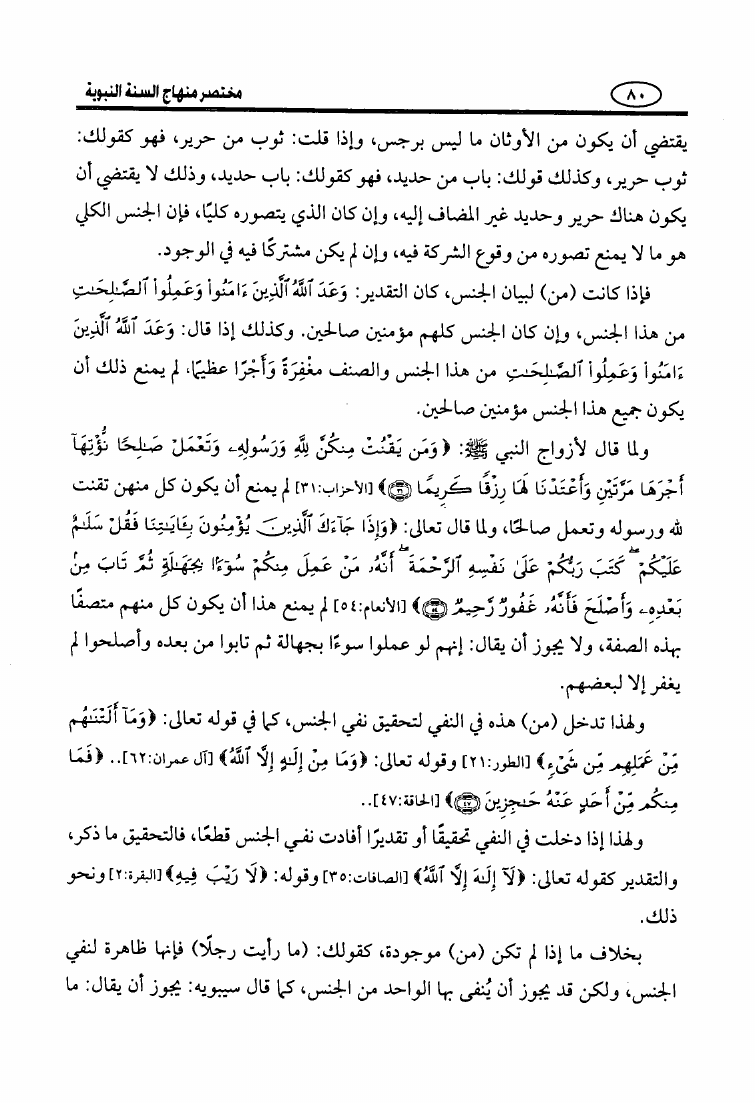 ٨٠
مختصر منهاج السنة النبوية
يقتضي أن يكون من الأوثان ما ليس برجس، وإذا قلت: ثوب من حرير، فهو كقولك:
ثوب حرير، وكذلك قولك: باب من حديد، فهو كقولك: باب حديد، وذلك لا يقتضي أن
يكون هناك حرير وحديد غير المضاف إليه، وإن كان الذي يتصوره كليًا، فإن الجنس الكلي
هو ما لا يمنع تصوره من وقوع الشركة فيه، وإن لم يكن مشتركًا فيه في الوجود.
فإذا كانت (من) لبيان الجنس، كان التقدير: وَعَدَ ٱللَّهُ ٱلَّذِينَ ءَامَنُواْ وَعَمِلُواْ ٱلصَّـٰلِحَـٰتِ
من هذا الجنس، وإن كان الجنس كلهم مؤمنين صالحين. وكذلك إذا قال: وَعَدَ ٱللَّهُ ٱلَّذِينَ
ءَامَنُواْ وَعَمِلُواْ ٱلصَّـٰلِحَـٰتِ من هذا الجنس والصنف مغْفِرَةً وَأَجْرًا عظيمًا، لم يمنع ذلك أن
يكون جميع هذا الجنس مؤمنين صالحين.
ولما قال لأزواج النبي ﷺ: ﴿وَمَن يَقْنُتْ مِنكُنَّ لِلَّهِ وَرَسُولِهِۦ وَتَعْمَلْ صَـٰلِحًا نُّؤْتِهَآ
أَجْرَهَا مَرَّتَيْنِ وَأَعْتَدْنَا لَهَا رِزْقًا كَرِيمًا ۝٣١﴾ [الأحزاب:٣١] لم يمنع أن يكون كل منهن تقنت
لله ورسوله وتعمل صالحًا، ولما قال تعالى: ﴿وَإِذَا جَآءَكَ ٱلَّذِينَ يُؤْمِنُونَ بِـَٔايَـٰتِنَا فَقُلْ سَلَـٰمٌ
عَلَيْكُمْ ۖ كَتَبَ رَبُّكُمْ عَلَىٰ نَفْسِهِ ٱلرَّحْمَةَ ۖ أَنَّهُۥ مَنْ عَمِلَ مِنكُمْ سُوٓءًۢا بِجَهَـٰلَةٍ ثُمَّ تَابَ مِنۢ
بَعْدِهِۦ وَأَصْلَحَ فَأَنَّهُۥ غَفُورٌ رَّحِيمٌ ۝٥٤﴾ [الأنعام:٥٤] لم يمنع هذا أن يكون كل منهم متصفًا
بهذه الصفة، ولا يجوز أن يقال: إنهم لو عملوا سوءًا بجهالة ثم تابوا من بعده وأصلحوا لم
يغفر إلا لبعضهم.
ولهذا تدخل (من) هذه في النفي لتحقيق نفي الجنس، كما في قوله تعالى: ﴿وَمَآ أَلَتْنَـٰهُم
مِّنْ عَمَلِهِم مِّن شَىْءٍ﴾ [الطور:٢١] وقوله تعالى: ﴿وَمَا مِنْ إِلَـٰهٍ إِلَّا ٱللَّهُ﴾ [آل عمران:٦٢].. ﴿فَمَا
مِنكُم مِّنْ أَحَدٍ عَنْهُ حَـٰجِزِينَ ۝٤٧﴾ [الحاقة:٤٧]..
ولهذا إذا دخلت في النفي تحقيقًا أو تقديرًا أفادت نفي الجنس قطعًا، فالتحقيق ما ذكر،
والتقدير كقوله تعالى: ﴿لَآ إِلَـٰهَ إِلَّا ٱللَّهُ﴾ [الصافات:٣٥] وقوله: ﴿لَا رَيْبَ فِيهِ﴾ [البقرة:٢] ونحو
ذلك.
بخلاف ما إذا لم تكن (من) موجودة، كقولك: (ما رأيت رجلًا) فإنها ظاهرة لنفي
الجنس، ولكن قد يجوز أن يُنفى بها الواحد من الجنس، كما قال سيبويه: يجوز أن يقال: ما